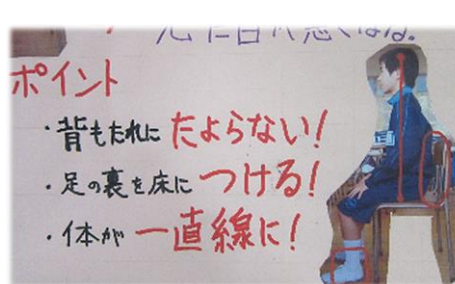 ポイント
・背もたれに たよらない!
・足の裏を床に つける!
・体が 一直線に!